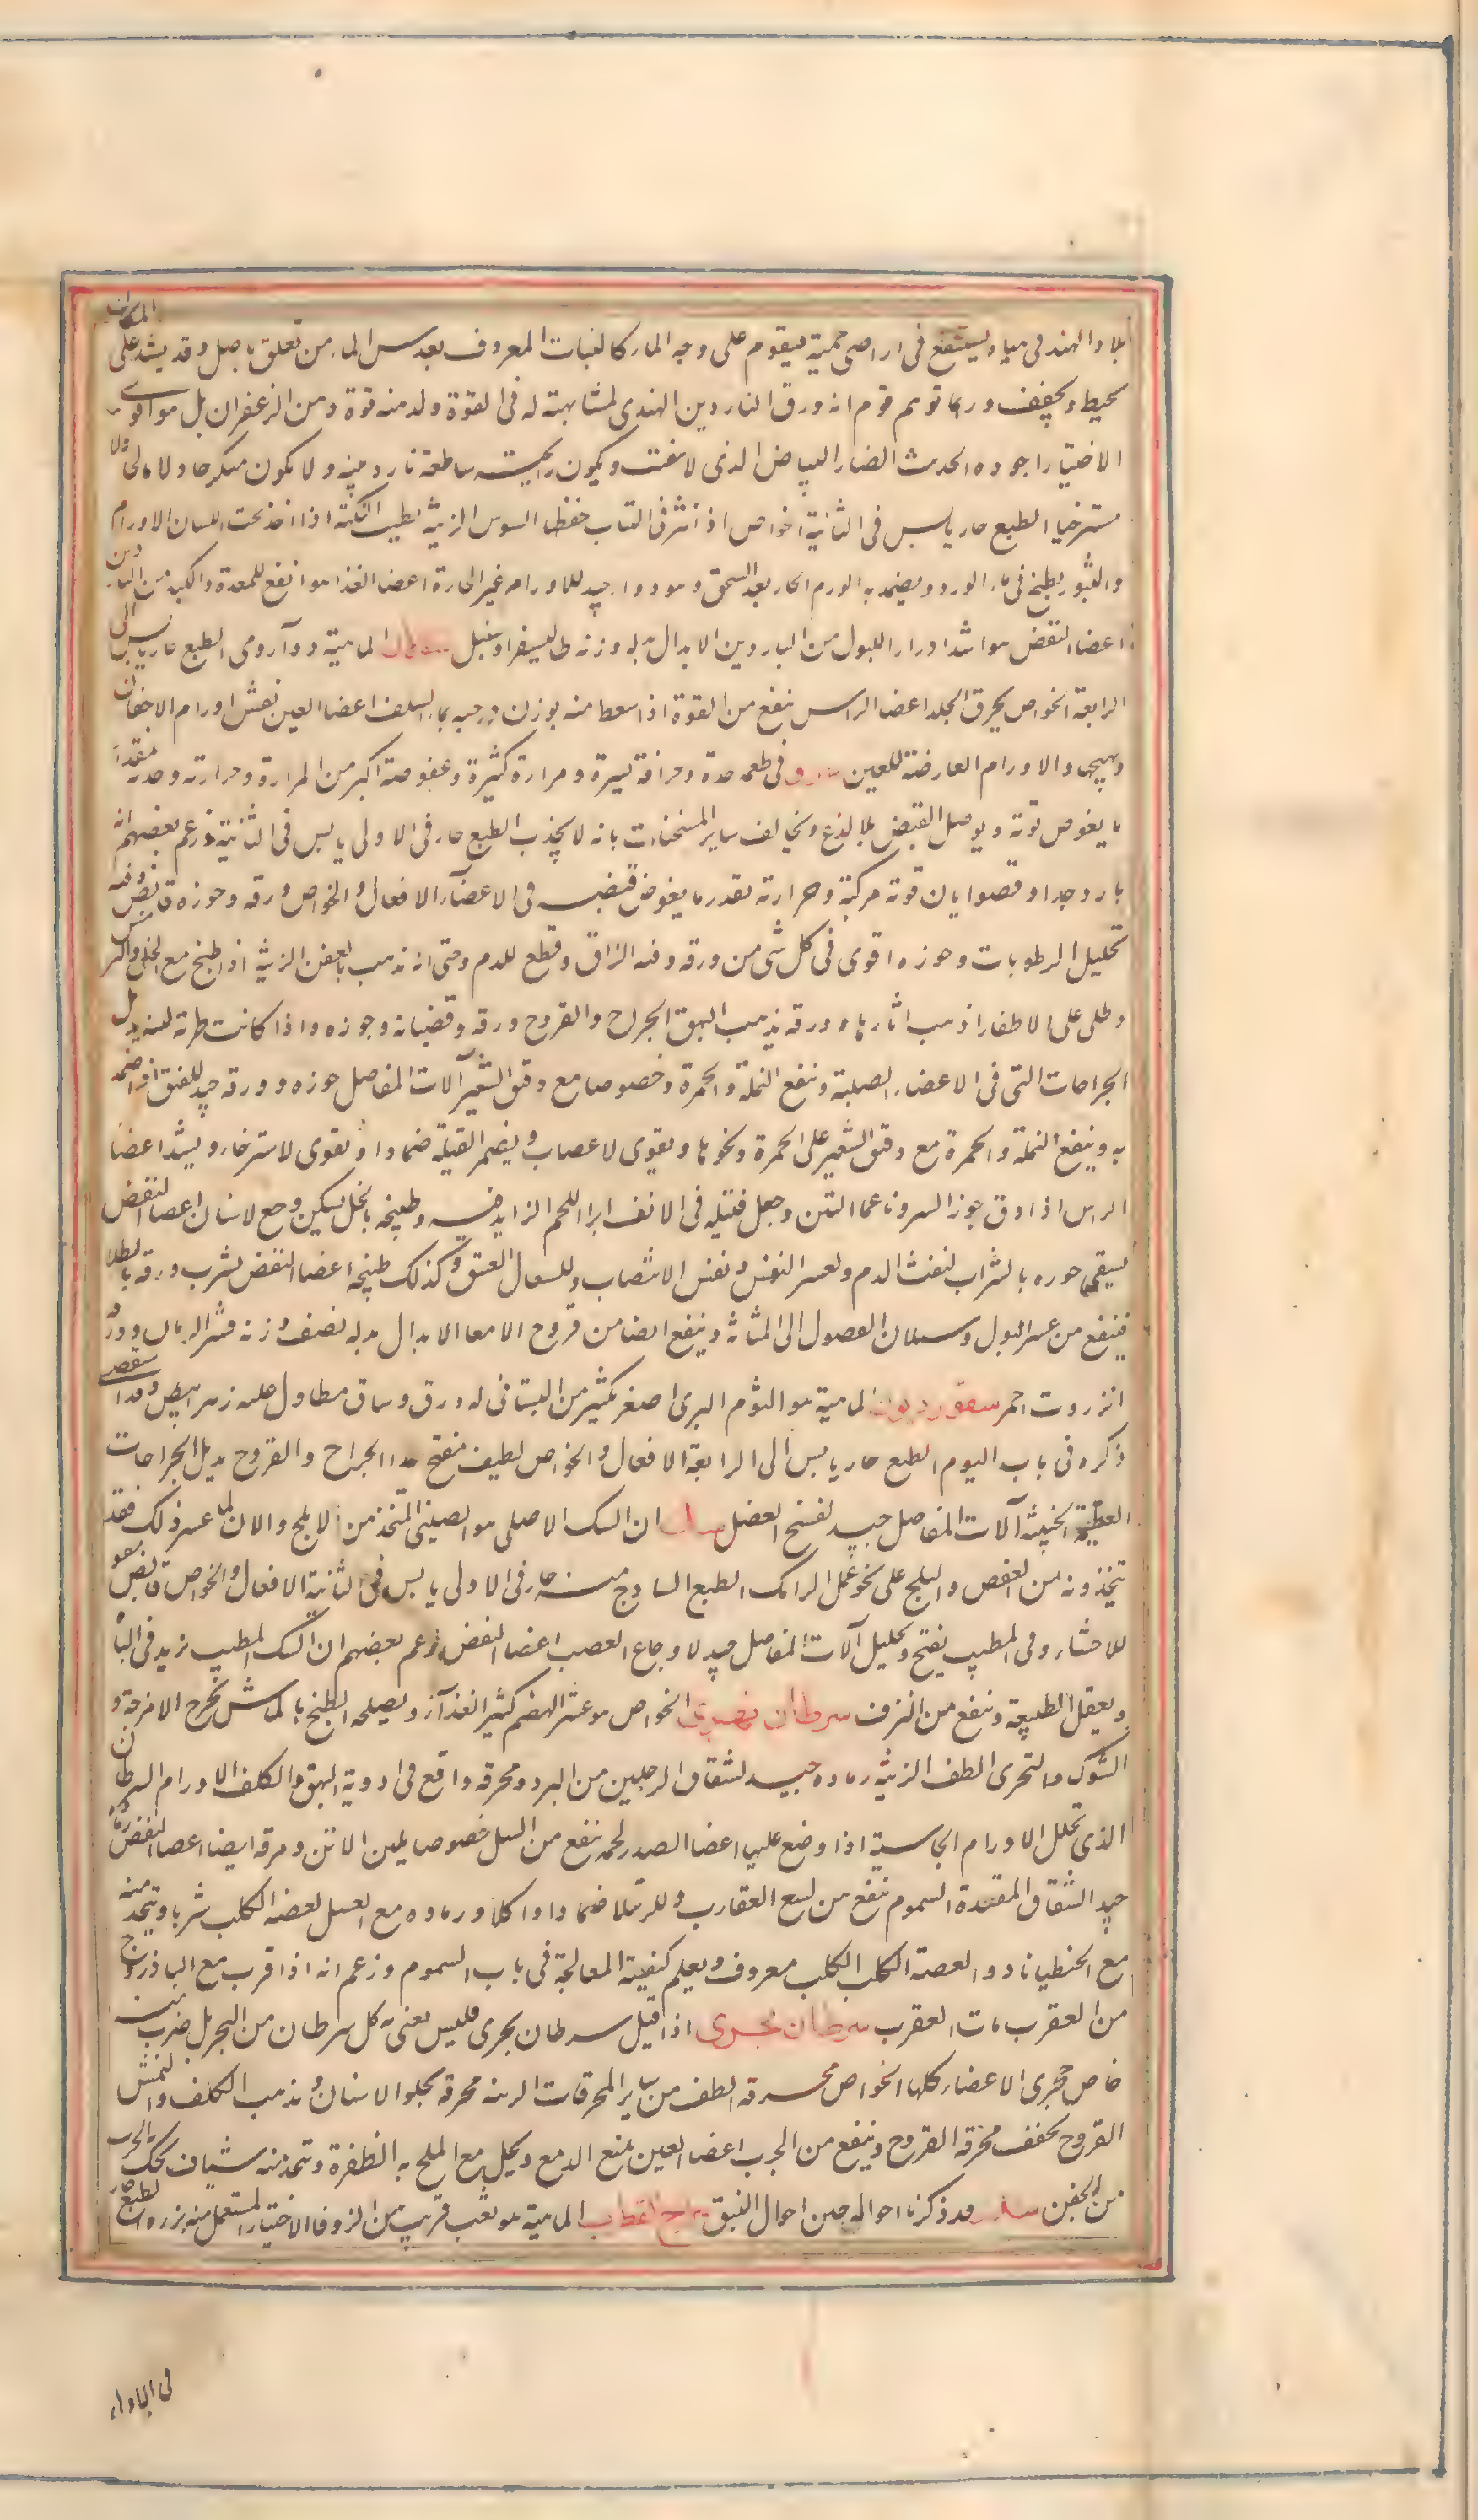 بلاد الهند فى مياه يستنقع فى اراضى حمية فيقوم على وجه الماء كالنبات المعروف بعدس الماء من تعلق باصل وقد يشد على المكان
خيط ويجفف وربما توهم قوم انه ورق الناردين الهندى لمشابهته له فى القوة وله منه قوة ومن الزعفران بل هو اقوى
الاختيار اجوده الحديث الضارب الى البياض الذى لا يتفتت ويكون رايحته ساطعة ناردينية ولا يكون متكرجا ولا مالحا ولا
مسترخيا الطبع حار يابس فى الثانية الخواص اذا نثر فى الثياب حفظها السوس الزينة يطيب النكهة اذا اخذ تحت اللسان الاورام
والبثور يطبخ فى ماء الورد ويضمد به الورم الحار بعد السحق وهو دواء جيد للاورام غير الحارة اعضا الغذا هو انفع للمعدة والكبد من الناردين
اعضا النفض هو اشد ادرارا للبول من الناردين الابدال بدله وزنه طاليسفر او سنبل الماهية دواء رومى الطبع حار يابس الى
الرابعة الخواص يحرق الجلد اعضا الراس ينفع من اللقوة اذا سعط منه بوزن حبة بماء السلق اعضا العين نفش اورام الاجفان
وتهيجها والاورام العارضة للعين سرو فى طعمه حدة وحرافة يسيرة ومرارة كثيرة وعفوصة اكبر من المرارة وحرارته وحدته بمقدار
ما يغوص قوته ويوصل القبض بلا لذع ويخالف ساير المسخنات بانه لا يجذب الطبع حار فى الاولى يابس فى الثانية وزعم بعضهم انه
بارد جدا وقضوا بان قوته مركبة وحرارته بقدر ما يغوض قبضه فى الاعضاء الافعال والخواص ورقه وجوزه قابض وفيه
تحليل الرطوبات وجوزه اقوى فى كل شى من ورقه وفيه الزاق وقطع للدم وحتى انه يذهب بالعفن الزينة اذا طبخ مع الخل والترمس
وطلى على الاظفار اذهب اثارها وورقه يذهب البهق الجراح والقروح ورقه وقضبانه وجوزه واذا كانت طرية لينة يدمل
الجراحات التى فى الاعضاء الصلبة وينفع النملة والحمرة وخصوصا مع دقيق الشعير آلات المفاصل جوزه وورقه جيد للفتق اذا ضمد
به وينفع النملة والحمرة مع دقيق الشعير على الحمرة ونحوها ويقوى الاعصاب ويضمر القيلة ضمادا ويقوى الاسترخاء ويشد اعضا
الراس اذا دق جوز السرو ناعما مع التين وجعل فتيلة فى الانف ابرا اللحم الزايد فيه وطبيخه بالخل يسكن وجع الاسنان اعضا النفض
يسقى جوزه بالشراب لنفث الدم ولعسر النفس ونفس الانتصاب وللسعال العتيق وكذلك طبيخه اعضا النفض يشرب ورقه بالطلا
فينفع من عسر البول وسيلان الفضول الى المثانة وينفع ايضا من قروح الامعا الابدال بدله نصف وزنه قشر الرمان ووزنه
انزروت احمر سقورديون الماهية هو الثوم البرى اصغر بكثير من البستانى له ورق وساق متطاول عليه زهر ابيض وقد استقصى
ذكره فى باب الثوم الطبع حار يابس الى الرابعة الافعال والخواص لطيف مفتح جدا الجراح والقروح يدمل الجراحات
العظيمة الخبيثة آلات المفاصل جيد لفسخ العضل سك ان السك الاصلى هو الصينى المتخذ من الاملج والان لما عسر ذلك فقد
يتخذونه من العفص والبلح على نحو عمل الرامك الطبع الساذج منه حار فى الاولى يابس فى الثانية الافعال والخواص قابض مقو
للاحشاء وفى المطيب تفتح وتحليل آلات المفاصل جيد لاوجاع العصب اعضا النفض زعم بعضهم ان السك المطيب يزيد فى الباه
ويعقل الطبيعة وينفع من النزف سرطان نهرى الخواص هو عسر الهضم كثير الغذاء ويصلحه الطبخ بالماش يخرج الازجة و
الشوك والبحرى الطف الزينة رماده جيد لشقاق الرجلين من البرد ومحرقه واقع فى ادوية البهق والكلف الاورام السرطان
الذى تحلل الاورام الجاسية اذا وضع عليها اعضا الصدر لحمه ينفع من السل خصوصا بلبن الاتن ومرقه ايضا اعضا النفض رماده
جيد لشقاق المقعدة السموم ينفع من لسع العقارب والرتيلا ضمادا واكلا ورماده مع العسل لعضة الكلب شربا ويتخذ منه
مع الجنطيانا دوا لعضة الكلب الكلب معروف ويعلم كيفية المعالجة فى باب السموم وزعم انه اذا قرب مع الباذروج
من العقرب مات العقرب سرطان بحرى اذا قيل سرطان بحرى فليس يعنى به كل سرطان من البحر بل ضرب منه
خاص حجرى الاعضاء كلها الخواص محرقه الطف من ساير المحرقات الزينة محرقه يجلو الاسنان ويذهب الكلف والنمش
القروح يجفف محرقه القروح وينفع من الجرب اعضا العين يمنع الدمع ويحل مع الملح به الظفرة ويتخذ منه شياف لحك الجرب
من الجفن قد ذكرنا احواله حين احوال القبق سراج القطرب الماهية هو نعت قريب من الزوفا الاختيار المستعمل منه بزره الطبع حار
فى الباواء